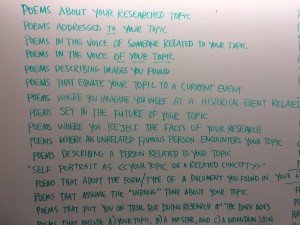 POEMS ABOUT YOUR RESEARCHED TOPIC
POEMS ADDRESSED TO YOUR TOPIC
POEMS IN THE VOICE OF SOMEONE RELATED TO YOUR TOPIC
POEMS IN THE VOICE OF YOUR TOPIC
POEMS DESCRIBING IMAGES YOU FOUND
POEMS THAT EQUATE YOUR TOPIC TO A CURRENT EVENT
POEMS WHERE YOU IMAGINE YOU WERE AT A HISTORICAL EVENT RELATED
POEMS SET IN THE FUTURE OF YOUR TOPIC
POEMS WHERE YOU REJECT THE FACTS OF YOUR RESEARCH
POEMS WHERE AN UNRELATED FAMOUS PERSON ENCOUNTERS YOUR TOPIC
POEMS DESCRIBING A PERSON RELATED TO YOUR TOPIC
"SELF PORTRAIT AS <<YOUR TOPIC OR A RELATED CONCEPT>>"
POEMS THAT ADOPT THE FORM/TYPE OF A DOCUMENT YOU FOUND IN YOUR
POEMS THAT ASSUME THE "WRONG" TONE ABOUT YOUR TOPIC
POEMS THAT PUT YOU ON TRIAL FOR DOING RESEARCH IN THE DARK AGES
POEMS THAT INCLUDE A) YOUR TOPIC, B) A POP STAR, AND C) A MOUNTAIN LION